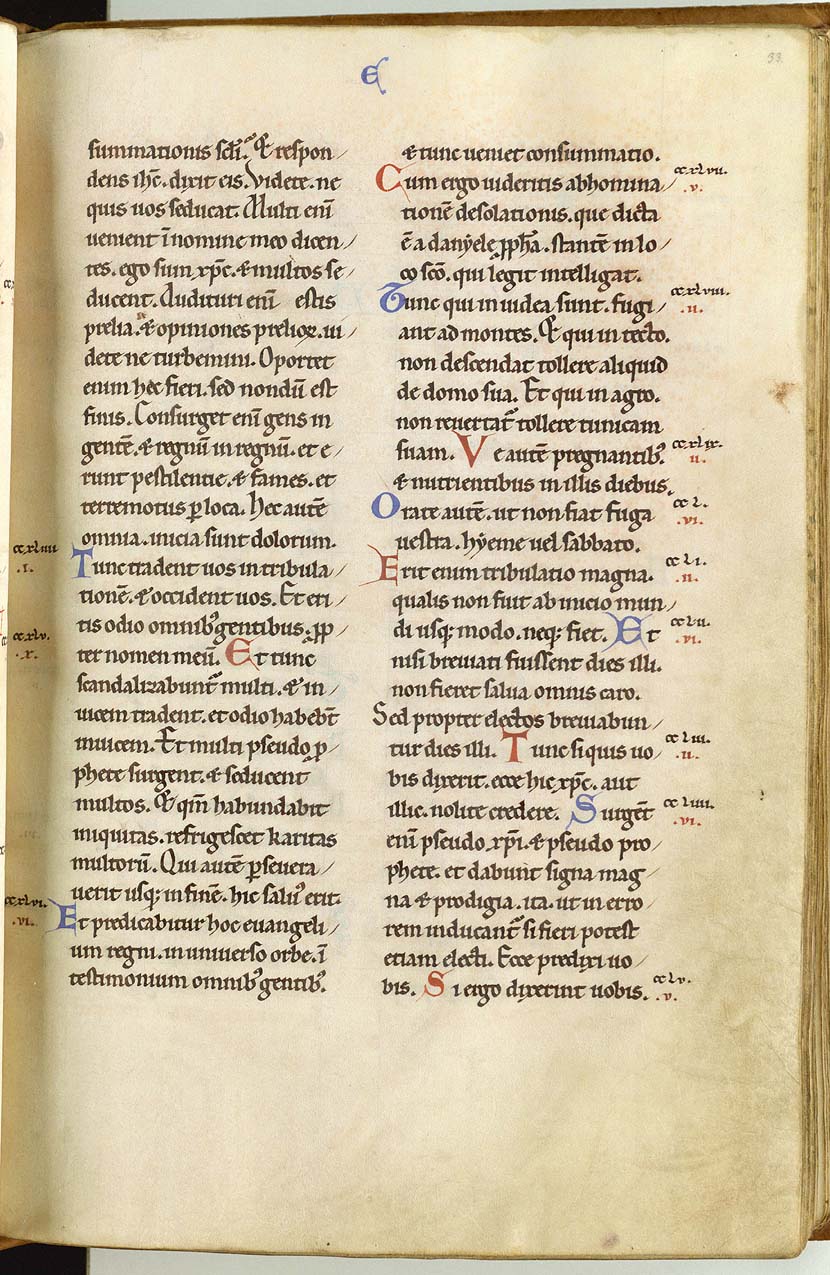 E
33
summationis sc̄li. Et respon
dens ih̄c. dixit eis. Videte. ne
quis uos seducat. Multi eni̅
uenient i̅ nomine meo dicen
tes. ego sum xp̄c. & multos se
ducent. Audituri eni̅ estis
prelia. & opiniones prelioꝝ. ui
dete ne turbemini. Oportet
enim hec fieri. sed nondu̅ est
finis. Consurget eni̅ gens in
gente̅. & regnu̅ in regnu̅. et e
runt pestilentie. & fames. et
terremotus ꝑ loca. Hec aute̅
omnia. inicia sunt dolorum.
cc.xl.iiii
.i.
Tunc tradent uos in tribula
tione̅. & occident uos. Et eri
tis odio omnib; gentibus. ꝓp
cc.xl.v.
.x.
ter nomen meu̅. Et tunc
scandalizabunt᷑ multi. & in
uicem tradent. et odio habeb̅t
inuicem. Et multi pseudo ꝓ
phete surgent. & seducent
multos. Et qm̅ habundabit
iniquitas. refrigescet karitas
multoru̅. Qui aute̅ ꝑseuera
uerit usq; in fine̅. hic saluꝰ erit.
cc.xl.vi.
.vi.
Et predicabitur hoc euangeli
um regni. in uniuerso orbe. i̅
testimonium omnib; gentib;.
& tunc ueniet consummatio.
Cum ergo uideritis abhomina
cc.xl.vii.
.v.
tione̅ desolationis. que dicta
e̅ a danyele ꝓph̄a. stante̅ in lo
co sc̄o. qui legit intelligat.
Tunc qui in iudea sunt. fugi
cc.xl.viii.
.ii.
ant ad montes. Et qui in tecto.
non descendat tollere aliquid
de domo sua. Et qui in agro.
non reuertat᷑ tollere tunicam
suam. Ve aute̅ pregnantib;.
cc.xl.ix.
ii.
& nutrientibus in illis diebus.
Orate aute̅. ut non fiat fuga
cc.l.
.vi.
uestra. hyeme uel sabbato.
Erit enim tribulatio magna.
cc.l.i.
.ii.
qualis non fuit ab inicio mun
di usq; modo. neq; fiet. Et
cc.l.ii.
.vi.
nisi breuiati fuissent dies illi.
non fieret salua omnis caro.
Sed propter electos breuiabun
tur dies illi. Tunc si quis uo
cc.l.iii.
.ii.
bis dixerit. ecce hic xp̄c. aut
illic. nolite credere. Surge̅t
cc.l.iiii.
.vi.
eni̅ pseudo xp̄i. & pseudo pro
phete. et dabunt signa mag
na & prodigia. ita. ut in erro
rem inducant᷑ si fieri potest
etiam electi. Ecce predixi uo
bis. Si ergo dixerint uobis.
cc.l.v.
.v.